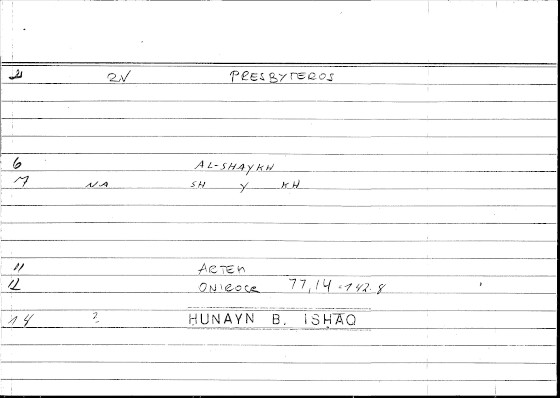 2N PRESBYTEROS
6 AL-SHAYKH
NA SH Y KH
11 ARTEM
12 ONIROCR 77,14 - 142.8
14 2 HUNAYN B. ISHAQ